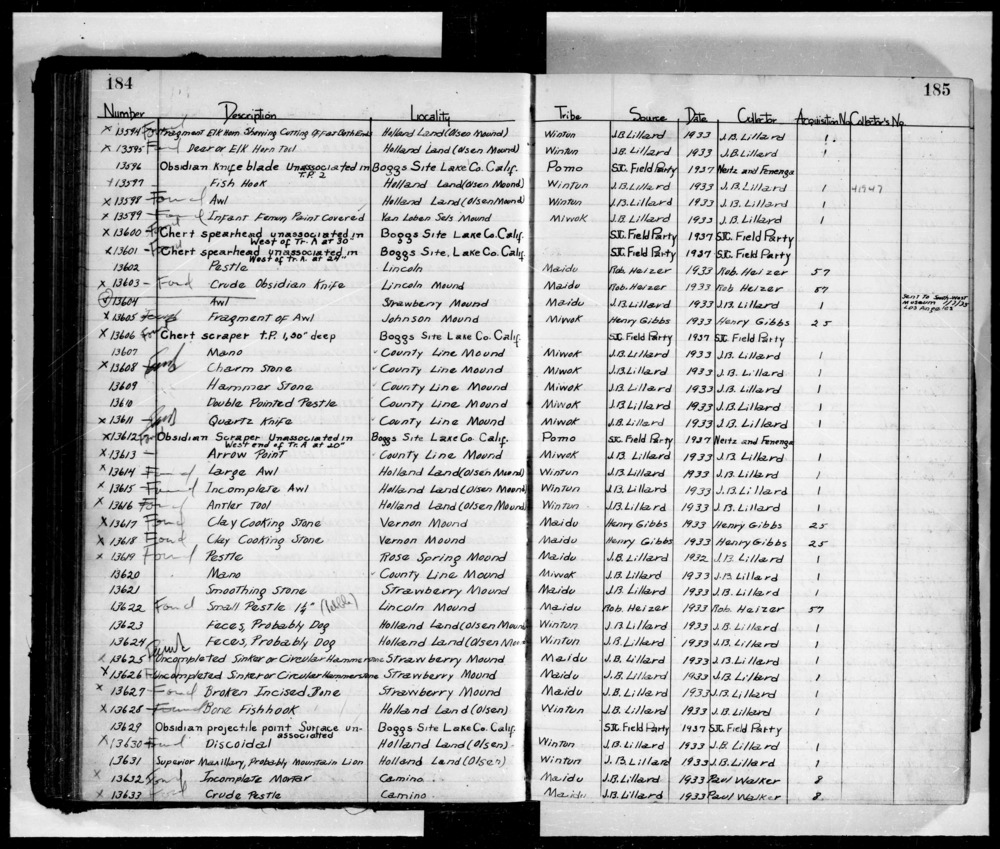 184
185
Number Description Locality Tribe Source Date Collector Acquisition No Collector's No
x 13594 Found Fragment Elk Horn Showing Cutting Off at Both Ends Holland Land (Olsen Mound) Wintun J.B. Lillard 1933 J.B. Lillard 1
x 13595 Found Deer or Elk Horn Tool Holland Land (Olsen Mound) Wintun J.B. Lillard 1933 J.B. Lillard 1
13596 Obsidian Knife blade Unassociated in T.P. 2 Boggs Site Lake Co. Calif. Pomo SJC. Field Party 1937 Neitz and Fenenga
+ 13597 - Fish Hook Holland Land (Olsen Mound) Wintun J.B. Lillard 1933 J.B. Lillard 1 41947
x 13598 Found Awl Holland Land (Olsen Mound) Wintun J.B. Lillard 1933 J.B. Lillard 1
x 13599 - Found Infant Femur, Paint Covered Van Loben Sels Mound Miwok J.B. Lillard 1933 J.B. Lillard 1
x 13600 - Found Chert spearhead unassociated in West of Tr. A at 30" Boggs Site Lake Co. Calif. SJC. Field Party 1937 SJC. Field Party
x 13601 - Found Chert spearhead unassociated in West of Tr. A at 24" Boggs Site, Lake Co. Calif. SJC. Field Party 1937 SJC. Field Party
13602 Pestle Lincoln Maidu Rob. Heizer 1933 Rob. Heizer 57
x 13603 - Found Crude Obsidian Knife Lincoln Mound Maidu Rob. Heizer 1933 Rob Heizer 57
13604 Awl Strawberry Mound Maidu J.B. Lillard 1933 J.B. Lillard 1 Sent To South-West Museum Los Angeles
x 13605 Found Fragment of Awl Johnson Mound Miwok Henry Gibbs 1933 Henry Gibbs 25
x 13606 Found Chert scraper T.P. 1, 00" deep Boggs Site Lake Co. Calif. SJC Field Party 1937 SJC Field Party
13607 Mano County Line Mound Miwok J.B. Lillard 1933 J.B. Lillard 1
x 13608 Found Charm Stone County Line Mound Miwok J.B. Lillard 1933 J.B. Lillard 1
13609 Hammer Stone County Line Mound Miwok J.B. Lillard 1933 J.B. Lillard 1
13610 Double Pointed Pestle County Line Mound Miwok J.B. Lillard 1933 J.B. Lillard 1
x 13611 Found Quartz Knife County Line Mound Miwok J.B. Lillard 1933 J.B. Lillard 1
x 13612 Found Obsidian Scraper Unassociated in West end of Tr. A at 20" Boggs Site Lake Co. Calif. Pomo SJC. Field Party 1937 Neitz and Fenenga
x 13613 - Arrow Point County Line Mound Miwok J.B. Lillard 1933 J.B. Lillard 1
x 13614 Found Large Awl Holland Land (Olsen Mound) Wintun J.B. Lillard 1933 J.B. Lillard 1
x 13615 Found Incomplete Awl Holland Land (Olsen Mound) Wintun J.B. Lillard 1933 J.B. Lillard 1
x 13616 Found Antler Tool Holland Land (Olsen Mound) Wintun J.B. Lillard 1933 J.B. Lillard 1
x 13617 Found Clay Cooking Stone Vernon Mound Maidu Henry Gibbs 1933 Henry Gibbs 25
x 13618 Found Clay Cooking Stone Vernon Mound Maidu Henry Gibbs 1933 Henry Gibbs 25
x 13619 Found Pestle Rose Spring Mound Maidu J.B. Lillard 1932 J.B. Lillard 1
13620 Mano County Line Mound Miwok J.B. Lillard 1933 J.B. Lillard 1
13621 Smoothing Stone Strawberry Mound Maidu J.B. Lillard 1933 J.B. Lillard 1
13622 Found Small Pestle 1½" Lincoln Mound Maidu Rob. Heizer 1933 Rob. Heizer 57
13623 Feces, Probably Dog Holland Land (Olsen Mound Wintun J.B. Lillard 1933 J.B. Lillard 1
13624 Feces, Probably Dog Holland Land (Olsen Mound Wintun J.B. Lillard 1933 J.B. Lillard 1
x 13625 Found Uncompleted Sinker or Circular Hammerstone Strawberry Mound Maidu J.B. Lillard 1933 J.B. Lillard 1
x 13626 Uncompleted Sinker or Circular Hammerstone Strawberry Mound Maidu J.B. Lillard 1933 J.B. Lillard 1
x 13627 - Found Broken Incised Bone Strawberry Mound Maidu J.B. Lillard 1933 J.B. Lillard 1
x 13628 - Found Bone Fishhook Holland Land (Olsen) Wintun J.B. Lillard 1933 J.B. Lillard 1
13629 Obsidian projectile point Surface un-associated Boggs Site Lake Co. Calif. SJC Field Party 1937 SJC. Field Party
x 13630 Found Discoidal Holland Land (Olsen) Wintun J.B. Lillard 1933 J.B. Lillard 1
13631 Superior Maxillary, Probably Mountain Lion Holland Land (Olsen) Wintun J.B. Lillard 1933 J.B. Lillard 1
x 13632 Found Incomplete Mortar Camino Maidu J.B. Lillard 1933 Paul Walker 8
x 13633 Found Crude Pestle Camino Maidu J.B. Lillard 1933 Paul Walker 8